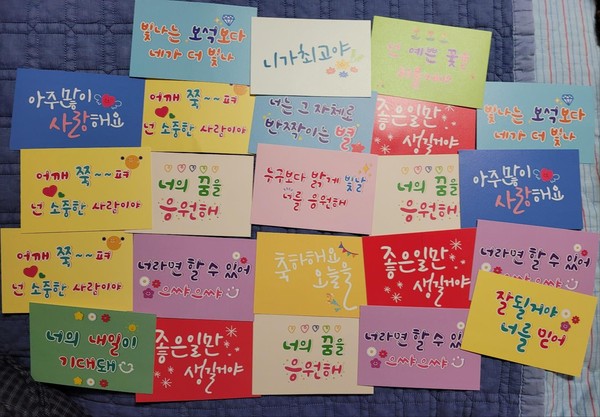 빛나는 보석보다
네가 더 빛나
니가 최고야
예쁜 꽃
아주 많이
사랑해요
어깨 쭉~~펴
넌 소중한 사람이야
너는 그 자체로
반짝이는 별
좋은일만
생길거야
빛나는 보석보다
네가 더 빛나
어깨 쭉~~펴
넌 소중한 사람이야
너의 꿈을
응원해
누구보다 밝게 빛날
너를 응원해
너의 꿈을
응원해
아주 많이
사랑해요
어깨 쭉~~펴
넌 소중한 사람이야
너라면 할 수 있어
으쌰으쌰
축하해요
오늘을
좋은일만
생길거야
너라면 할 수 있어
으쌰으쌰
잘될거야
너를 믿어
너의 내일이
기대돼
좋은일만
생길거야
너의 꿈을
응원해
너라면 할 수 있어
으쌰으쌰